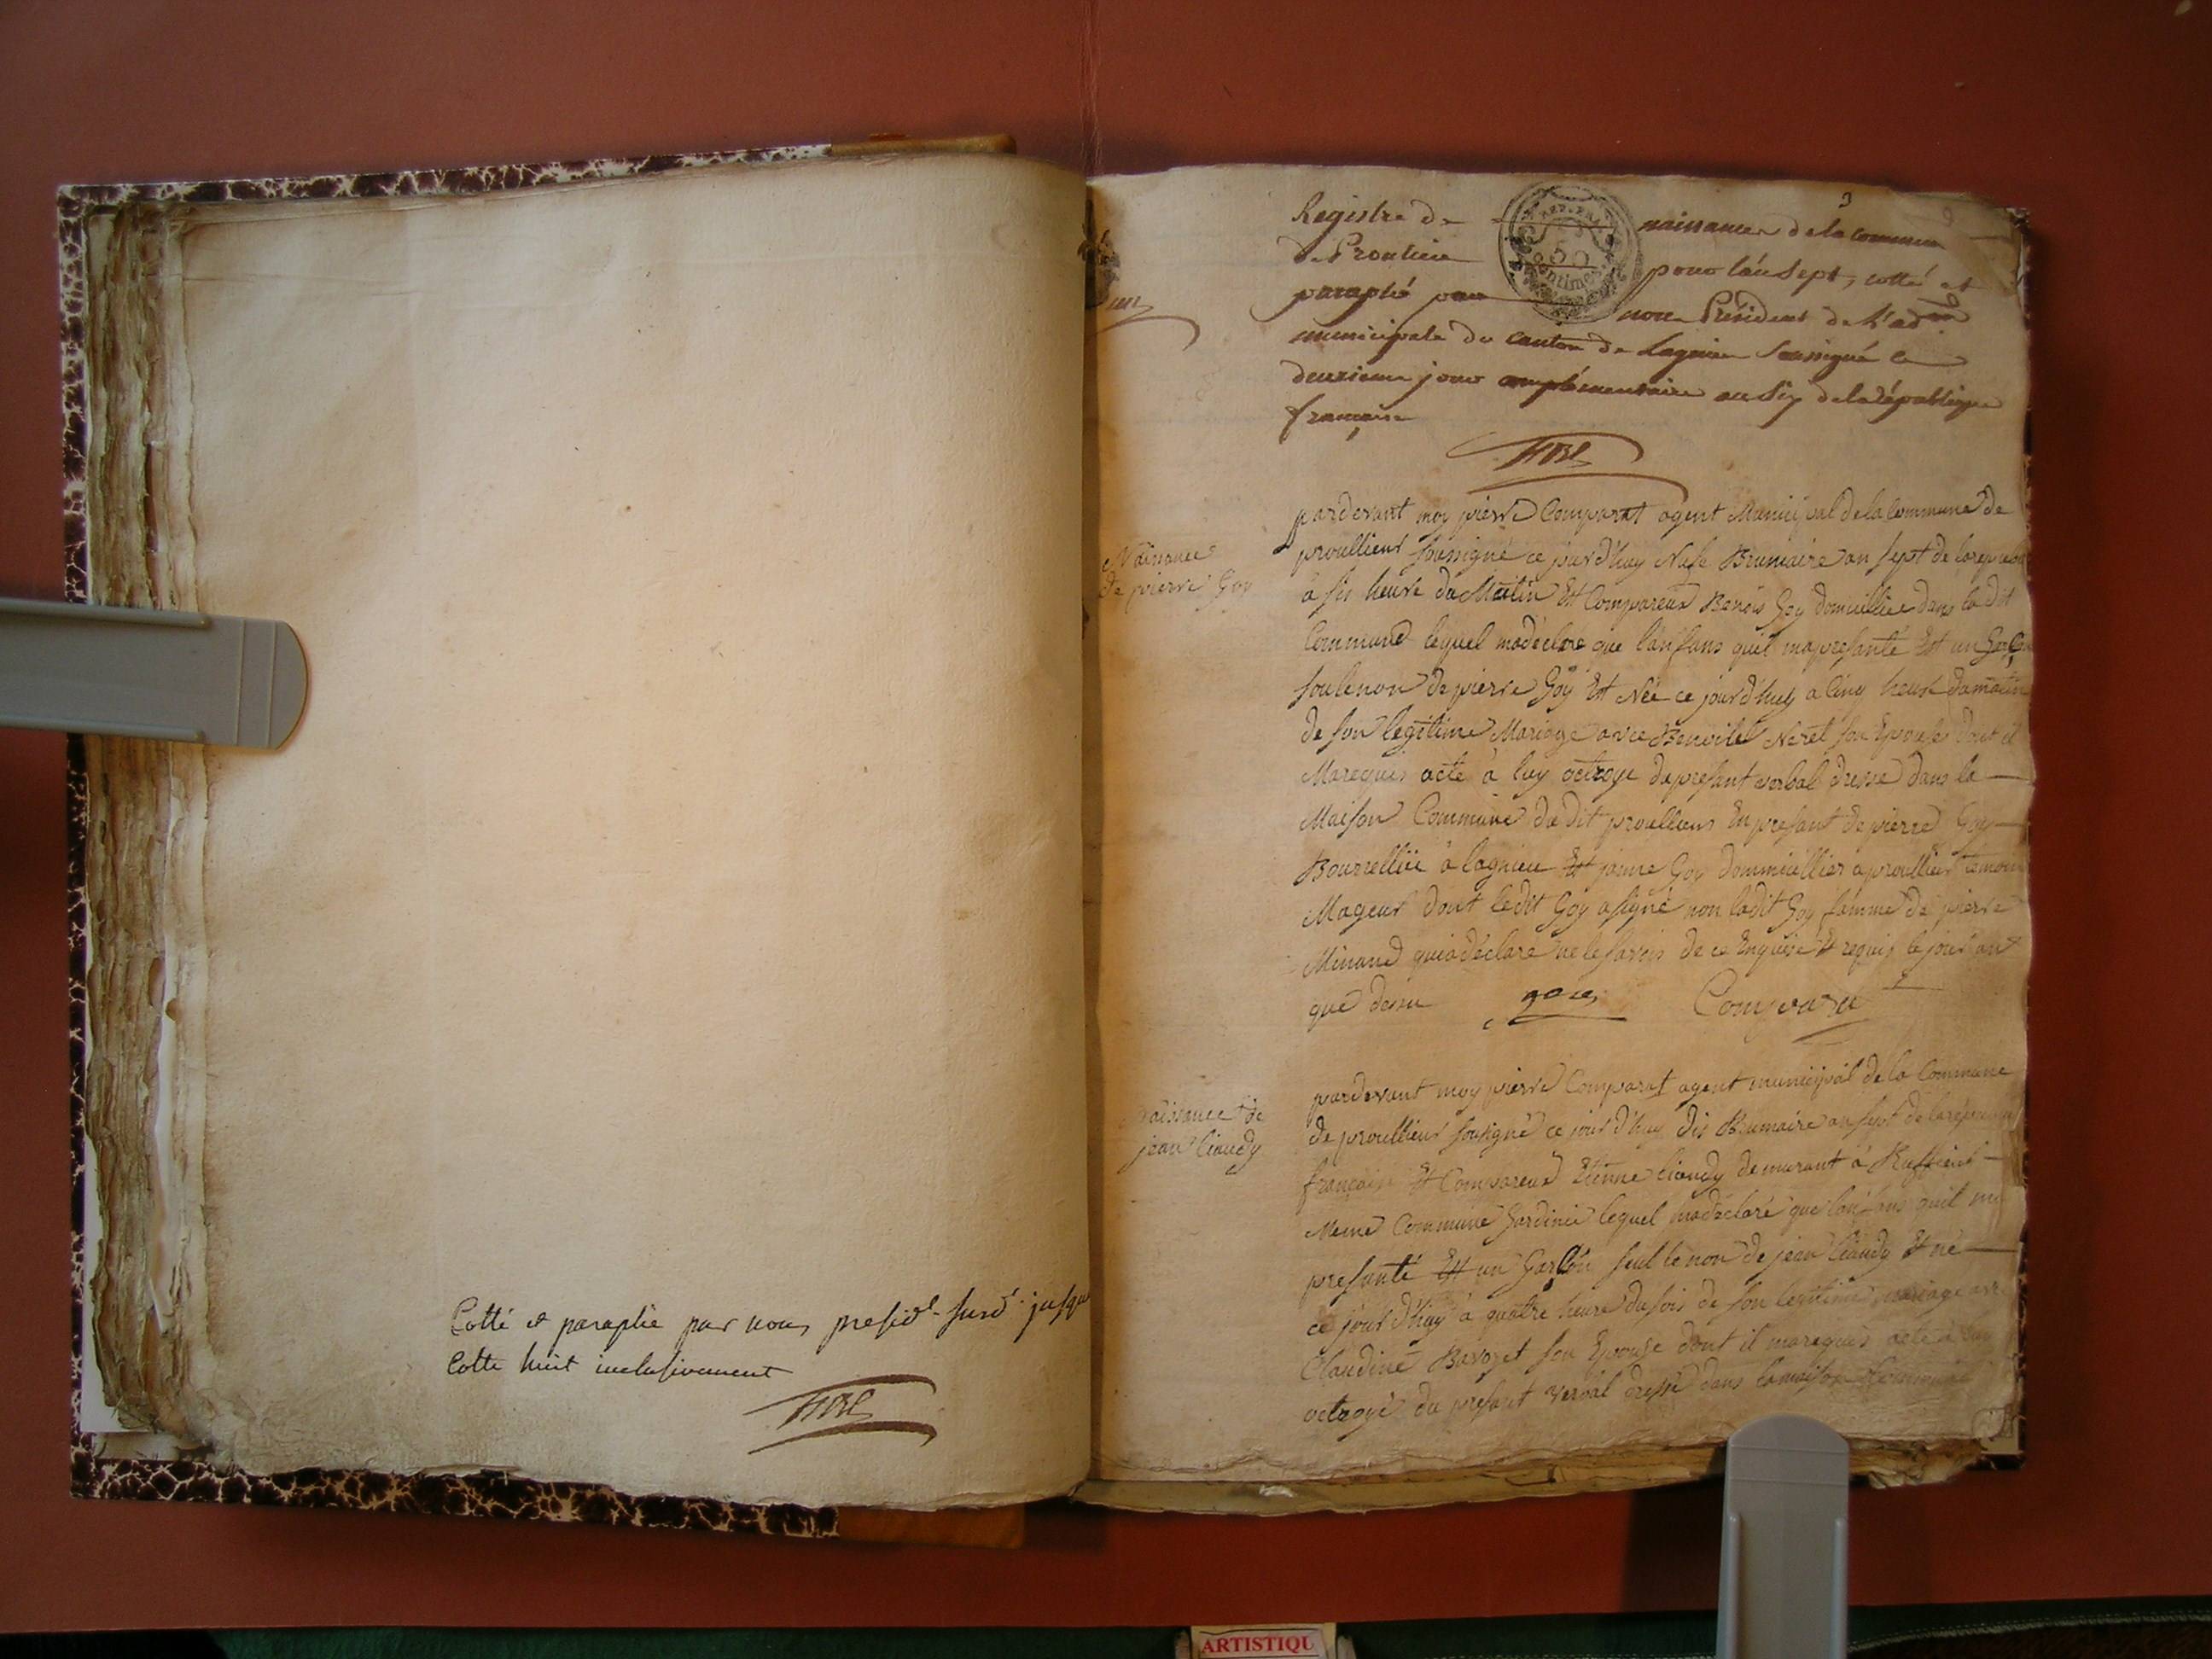 Cotté et paraphé par nous presid.t sus.d jusqu
Cotte huit inclusivement
3
Registre de naissances de la commune
de Proulieu pour l'an sept, cotté et
paraphé par nous Président de l'ad.on
municipale du canton de Lagnieu soussigné le
deuxieme jour complémentaire an six de la république
française
REP. FRA
50
centimes
Naissance
de pierre Goy
pardevant moy pierre Comparat agent Municipal de la Commune de
proullieux soussigné ce jourd'huy Nefe Brumaire an sept de la republi
a sis heure du Matin Est Compareux Benois Goy domicilliée dans la dit
Commune lequel ma déclare que l'anfans quil ma presanté Est un Garçon
soulenon de pierre Goy Est Née ce jourd'huy a Cinq heure du matin
de son legitime Mariage avec Benoite Neret son Epouse dont il
Marequis acte à luy octroye du presant verbal dressé dans la
Maison Commune du dit proullieux En presant de pierre Goy
Bourrellie a lagnieu Est janne Goy dommicillier a proullieux temoin
Mageur dont ledit Goy a signé non ladit Goy famme de pierre
Minand qui a déclare ne le savoir de ce Enquise Et requis le jour an
que dessu
goy Comparat
Naissance de
jean Ciaudy
pardevant moy pierre Comparat agent municipal de la Commune
de proullieux sousigné ce jour d'huy dis Brumaire an sept de la republi
française Est Compareux Etienne Ciaudy demurant à Ruffieux
Meme Commune Jardinié lequel ma déclaré que l'anfans quil ma
presanté Est un Garçon soul le non de jean Ciaudy Est né
ce jour d'huy a quatre heure du soir de son legitime mariage avec
Claudine Bavozet son Epouse dont il marequis acte a luy
octroyé du presant verbal dressé dans la maison Commune
ARTISTIQU